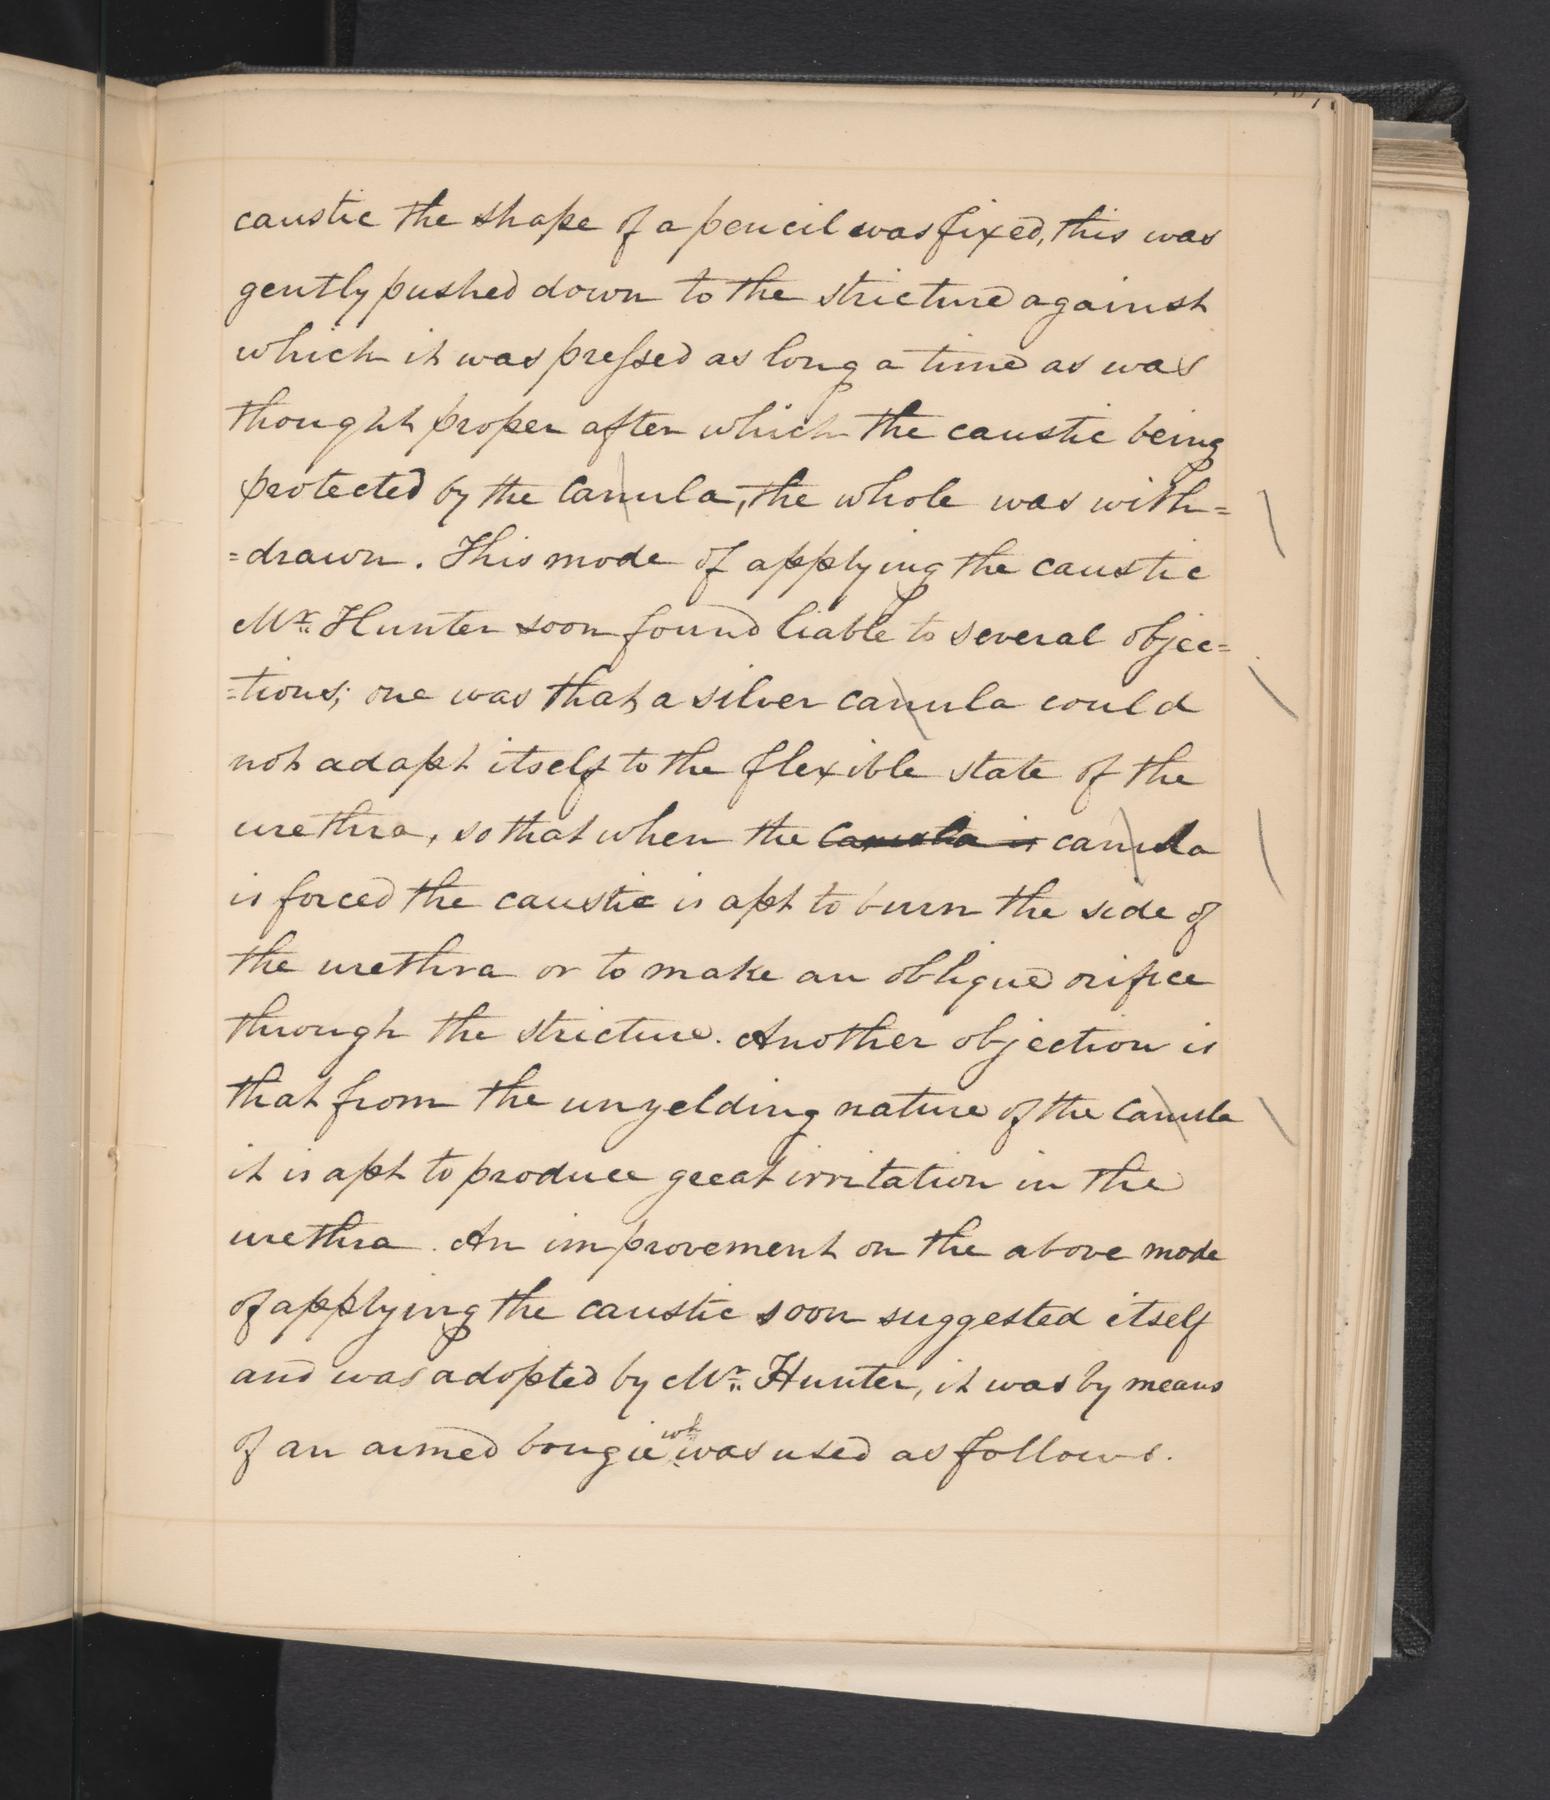 caustic the shape of a pencil was fixed, this was
gently pushed down to the stricture against
which it was preſsed as long a time as was
thought proper after which the caustic being
protected by the canula, the whole was with=
=drawn. This mode of applying the caustic
Mr. Hunter soon found liable to several objec=
=tions; one was that a silver canula could
not adapt itself to the flexible state of the
urethra, so that when the canula is canula
is forced the caustic is apt to burn the side of
the urethra or to make an oblique orifice
through the stricture. Another objection is
that from the unyelding nature of the canula
it is apt to produce great irritation in the
urethra. An improvement on the above mode
of applying the caustic soon suggested itself
and was adopted by Mr. Hunter, it was by means
of an armed bougie wh was used as follows.